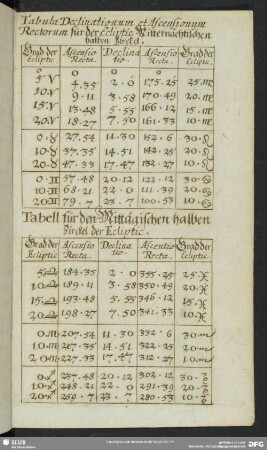 Tabula Declinationum et Ascensionum
Rectarum für der Ecliptic Mitternächtischen
halben Zirckel.
Grad der Ascensio Declina Ascensio Grad der
Ecliptic. Recta. tio. Recta. Ecliptic.
0 0 0 0
5.♈ 4.35 2.0 175.25 25.♍
10.♈ 9.11 3.58 170.49 20.♍
15.♈ 13.48 5.55 166.12 15.♍
20.♈ 18.27 7.50 161.33 10.♍
0.♉ 27.54 11.30 152.6 30.♌
10.♉ 37.35 14.51 142.25 20.♌
20.♉ 47.33 17.47 132.27 10.♌
0.♊ 57.48 20.12 122.12 30.♋
10.♊ 68.21 22.0 111.39 20.♋
20.♊ 79.7 23.7 100.53 10.♋
Tabell für den Mittägischen halben
Zirckel der Ecliptic.
Grad der Ascensio Declina Ascentio Grad der
Ecliptic Recta. tio Recta. Ecliptic.
5.♎ 184.35 2.0 355.25 25.♓
10.♎ 189.11 3.58 350.49 20.♓
15.♎ 193.48 5.55 346.12 15.♓
20.♎ 198.27 7.50 341.33 10.♓
0.♏ 207.54 11.30 332.6 30.♒
10.♏ 217.35 14.51 322.25 20.♒
20.♏ 227.33 17.47 312.27 10.♒
0.♐ 237.48 20.12 302.12 30.♑
10.♐ 248.21 22.0 291.39 20.♑
20.♐ 259.7 23.7 280.53 10.♑
SLUB
DFG